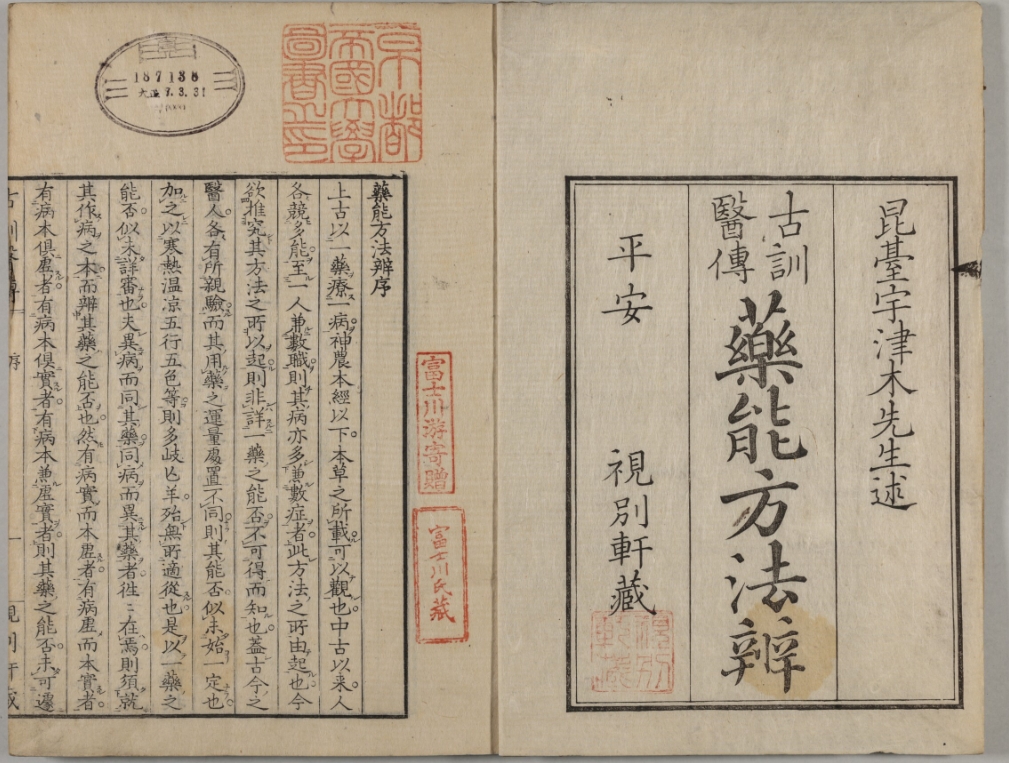 昆臺宇津木先生述
古訓
醫傳
藥能方法辨
平安　視別軒藏
視別
軒藏
京都
帝國大學
圖書之印
187138
大正7.3.31
富士川游寄贈
富士川氏藏
藥能方法辨序
上古以一藥療一病神農本經以下本草之所載可以觀也中古以来人
各競多能至一人兼數職則其病亦多兼數症者此方法之所由起也今
欲推究其方法之所以起則非詳一藥之能否不可得而知也蓋古今之
醫人各有所親驗而其用藥之運量處置不同則其能否似未始一定也
加之以寒熱温凉五行五色等則多歧亡羊殆無所適從也是以一藥之
能否似未詳審也夫異病而同其藥同病而異其藥者徃〻在焉則須就
其作病之本而辨其藥之能否也然有病實而本虚者有病虚而本實者
有病本俱虚者有病本俱實者有病本兼虚實者則其藥之能否未可遽